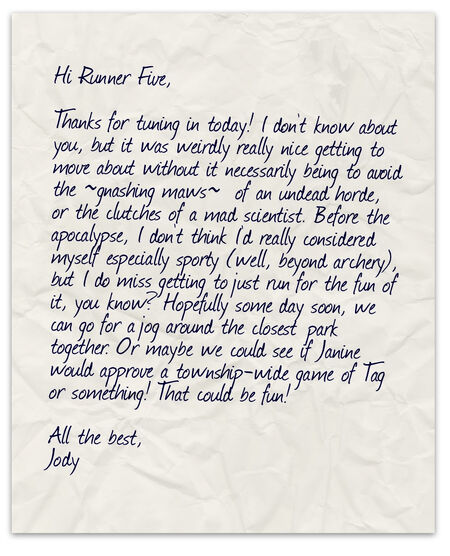 Hi Runner Five,
Thanks for tuning in today! I don't know about
you, but it was weirdly really nice getting to
move about without it necessarily being to avoid
the ~gnashing maws~ of an undead horde,
or the clutches of a mad scientist. Before the
apocalypse, I don't think I'd really considered
myself especially sporty (well, beyond archery),
but I do miss getting to just run for the fun of
it, you know? Hopefully some day soon, we
can go for a jog around the closest park
together. Or maybe we could see if Janine
would approve a township-wide game of Tag
or something! That could be fun!
All the best,
Jody